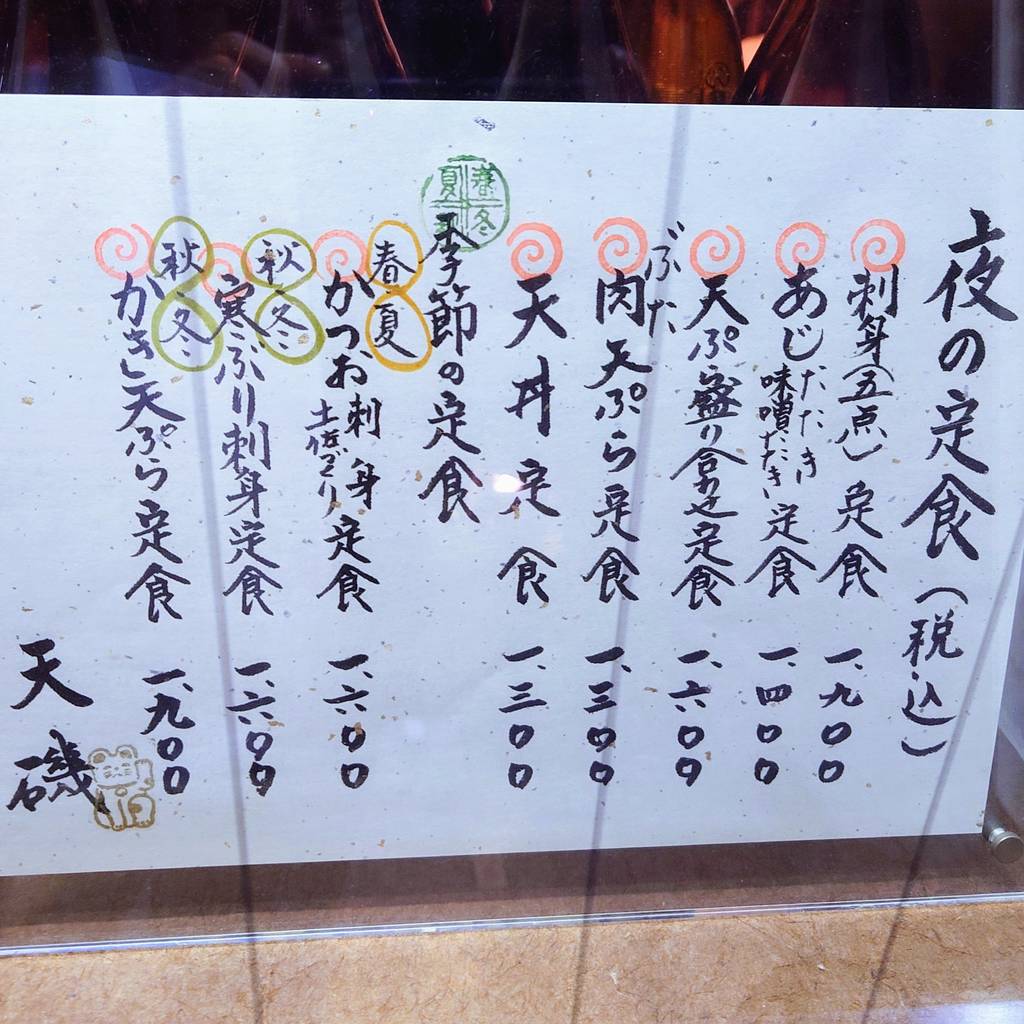 夜の定食(税込)
刺身(五点)定食 一、九〇〇
あじたたき味噌たたき定食 一、四〇〇
天ぷら盛り合わせ定食 一、六〇〇
ぶた
肉天ぷら定食 一、三〇〇
天丼定食 一、三〇〇
春夏冬
季節の定食
春夏
かつお刺身土佐づくり定食 一、六〇〇
秋冬
寒ぶり刺身定食 一、六〇〇
秋冬
かき天ぷら定食 一、九〇〇
天磯